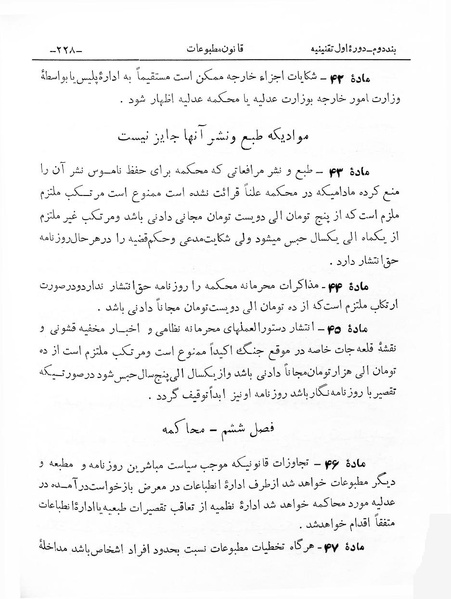 بند دوم ـ دورهٔ اول تقنینیه قانون مطبوعات ـ۲۲۸ـ
مادهٔ ۴۲ ـ شکایات اجزاء خارجه ممکن است مستقیماً به ادارهٔ پلیس یا بواسطهٔ
وزارت امور خارجه بوزارت عدلیه یا محکمه عدلیه اظهار شود .
موادیکه طبع و نشر آنها جایز نیست
مادهٔ ۴۳ ـ طبع و نشر مرافعاتی که محکمه برای حفظ ناموس نشر آن را
منع کرده مادامیکه در محکمه علناً قرائت نشده است ممنوع است مرتکب ملتزم
ملزم است که از پنج تومان الی دویست تومان مجانی دادنی باشد و مرتکب غیر ملتزم
از یکماه الی یکسال حبس میشود ولی شکایت مدعی و حکم قضیه را در هر حال روزنامه
حق انتشار دارد .
مادهٔ ۴۴ ـ مذاکرات محرمانه محکمه را روزنامه حق انتشار ندارد و در صورت
ارتکاب ملزم است که از ده تومان الی دویست تومان مجاناً دادنی باشد .
مادهٔ ۴۵ ـ انتشار دستورالعملهای محرمانه نظامی و اخبار مخفیه قشونی و
نقشهٔ قلعه جات خاصه در موقع جنگ اکیداً ممنوع است و مرتکب ملتزم است از ده
تومان الی هزار تومان مجاناً دادنی باشد و از یکسال الی پنج سال حبس شود در صورتیکه
تقصیر با روزنامه نگار باشد روزنامه او نیز ابداً توقیف گردد .
فصل ششم ـ محاکمه
مادهٔ ۴۶ ـ تجاوزات قانونیکه موجب سیاست مباشرین روزنامه و مطبعه و
دیگر مطبوعات خواهد شد از طرف ادارهٔ انطباعات در معرض بازخواست در آمده در
عدلیه مورد محاکمه خواهد شد ادارهٔ نظمیه از تعاقب تقصیرات طبعیه با ادارهٔ انطباعات
متفقاً اقدام خواهد شد .
مادهٔ ۴۷ ـ هر گاه تخطیات مطبوعات نسبت بحدود افراد اشخاص باشد مداخلهٔ